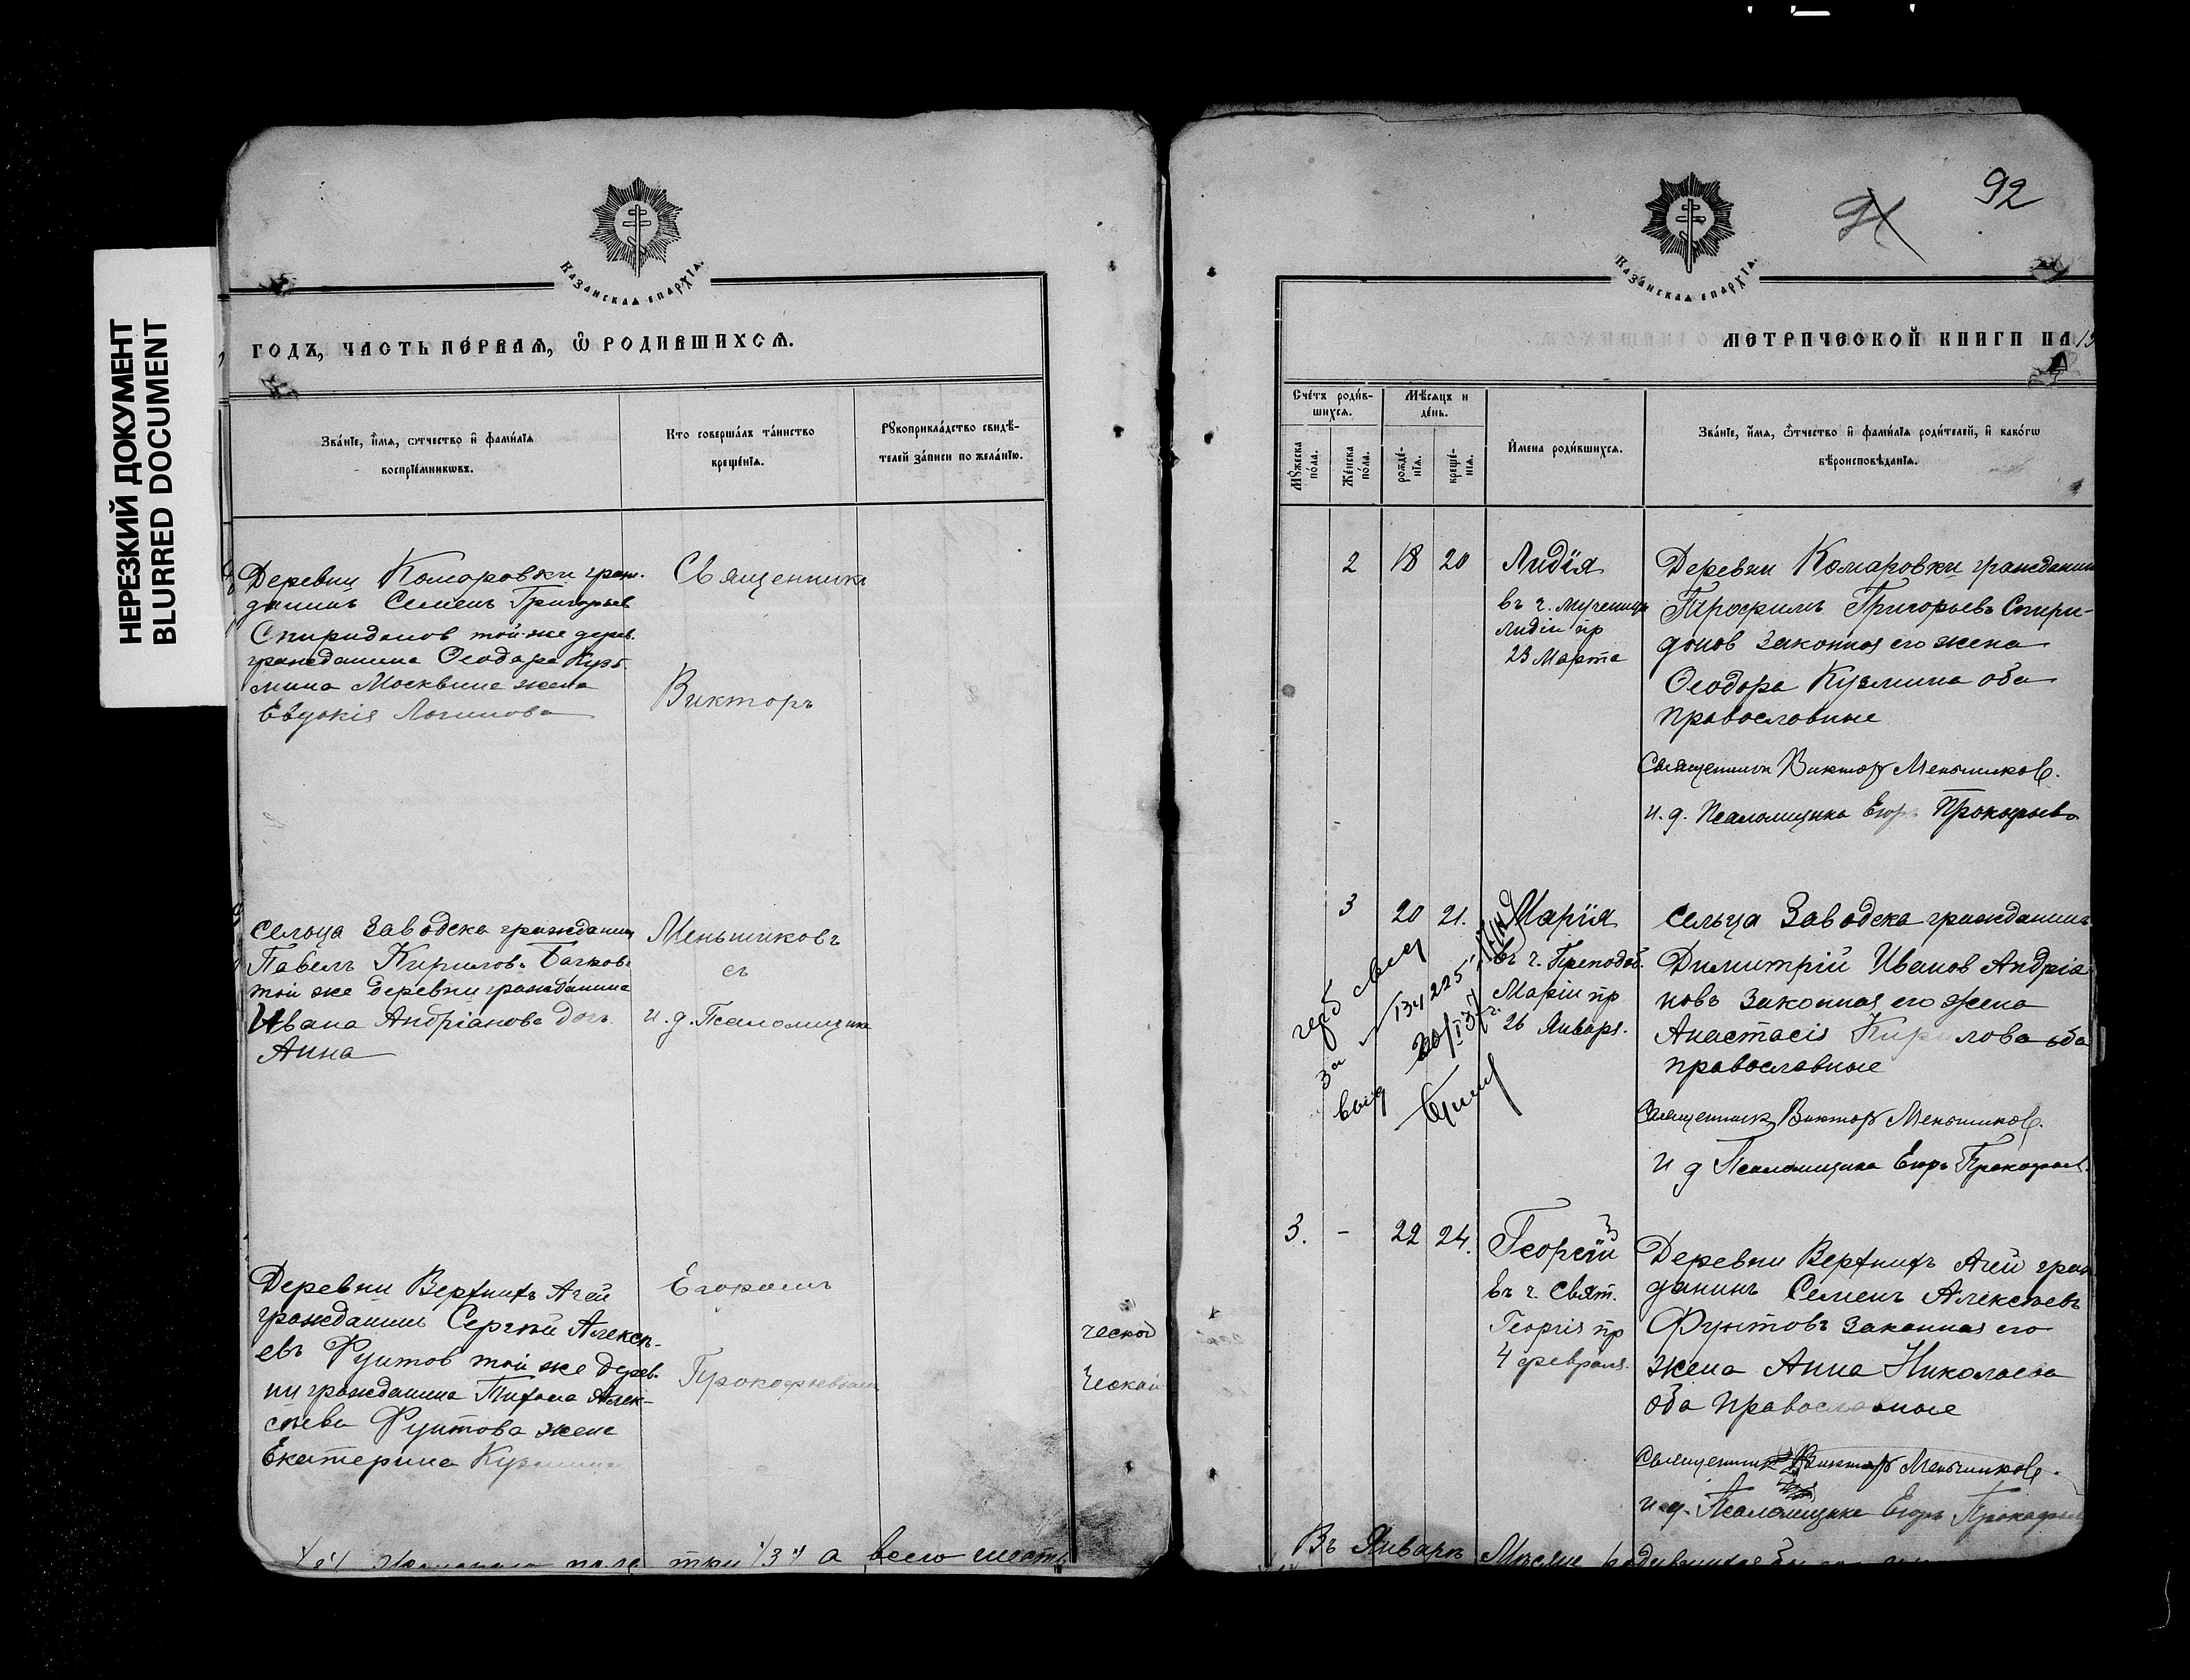 НЕРЕЗКИЙ ДОКУМЕНТ
BLURRED DOCUMENT
Казанская епархїа.
ГОДЪ, ЧАСТЬ ПЕ́РВАѦ, Ѽ РОДИ́ВШИХСѦ.
Зва́нїе, и҆́мѧ, ѻтчество и҆ фами́лїѧ
воспрїе́мникѡвъ.
Кто соверша́лъ та́инство
креще́нїѧ.
Рꙋкоприкла́дство свидѣ́-
телей за́писи по жела́нїю.
Деревни Комаровки граж-
данинъ Семенъ Григорьев
Спиридонов той-же дерев.
гражданина Ѳеодора Кузь-
мина Москвина жена
Евдокія Логинова
Священникъ
Викторъ
сельца Заводска гражданин
Павелъ Кирилов. Бачков.
той же деревни гражданина
Ивана Андріанова дочь
Анна
Меньшиковъ
съ
и. д. Псаломщика
Деревни Верхнихъ Ачей
гражданинъ Сергѣй Алексѣ-
евъ Фунтов той же дерев-
ни гражданина Тихона Алек-
сѣева Фунтова жена
Екатерина Кузмина
Егоромъ
Прокофьевымъ
ческой
ческой
пола три /3/ а всего шесть
92
Казанская епархїа.
МЕТРИЧЕСКОЙ КНИГИ НА 19
Сче́тъ роди́в-
шихсѧ.
Мѣ́сѧцъ и
де́нь.
Мꙋ́жеска
по́ла.
Же́нска
по́ла.
рожде́-
нїѧ.
креще́-
нїѧ.
И҆мена роди́вшихсѧ.
Зва́нїе, и҆́мѧ, ѻ҆́тчество и҆ фами́лїѧ роди́телей, и҆ како́гѡ
вѣроисповѣ́данїѧ.
2 18 20 Лидія
въ ч. мученицы
Лидіи пр
23 Марта
Деревни Комаровки гражданин
Трофимъ Григорьевъ Спири-
донов законная его жена
Ѳеодора Кузмина оба
православные
Священник Виктор Меньшиков.
и. д. Псаломщика Егор Прокофьев
3 20 21. Марія
въ ч. Преподоб.
Маріи пр
26 Января.
за № 134225
выд 20/I 37 г.
сельца Заводска гражданинъ
Димитрій Иванов Андріа-
новъ законная его жена
Анастасія Кирилова оба
православные
Священник Виктор Меньшиков.
и д Псаломщика Егоръ Прокофьев
3. - 22 24. Георгій
въ ч. Свят.
Георгія пр
4 февраля.
Деревни Верхнихъ Ачей граж
данинъ Семенъ Алексѣевъ
Фунтовъ законная его
жена Анна Николаева
оба православные
Священник Виктор Меньшиков.
и. д. Псаломщика Егоръ Прокофьев
Въ Январѣ Мѣсяце родившихся